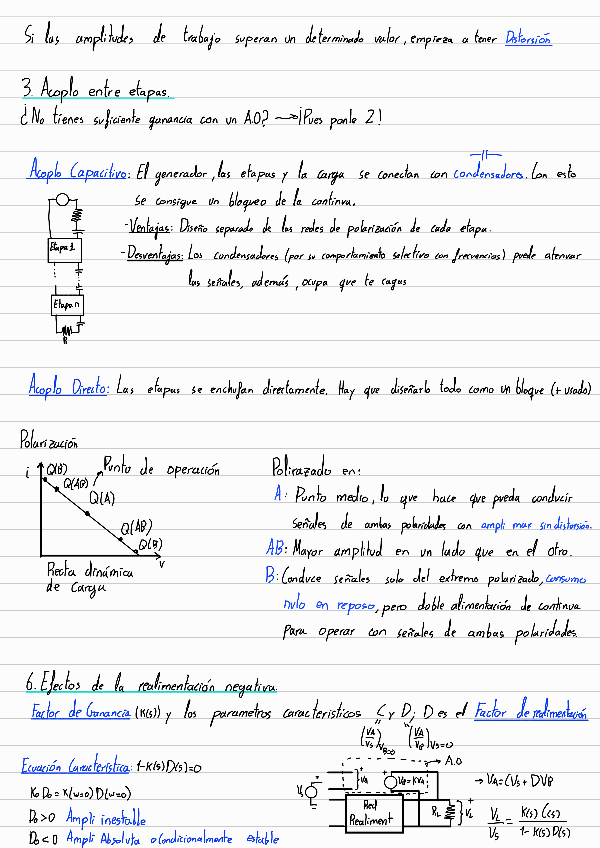 Si las amplitudes de trabajo superan un determinado valor, empieza a tener Distorsión
3. Acoplo entre etapas.
¿No tienes suficiente ganancia con un A.O? → ¡Pues ponle 2!
Acoplo Capacitivo: El generador, las etapas y la carga se conectan con condensadores. Con esto
se consigue un bloqueo de la continua.
- Ventajas: Diseño separado de las redes de polarización de cada etapa.
- Desventajas: Los condensadores (por su comportamiento selectivo con frecuencias) puede atenuar
las señales, además, ocupa que te cagas
Etapa 1
Etapa n
R
Acoplo Directo: Las etapas se enchufan directamente. Hay que diseñarlo todo como un bloque (+ usado)
Polarización
i
Q(B)
Q(AB)
Punto de operación
Q(A)
Q(AB)
Q(B)
v
Recta dinámica
de carga
Polirazado en:
A: Punto medio, lo que hace que pueda conducir
señales de ambas polaridades con ampli max sin distorsión.
AB: Mayor amplitud en un lado que en el otro.
B: Conduce señales solo del extremo polarizado, consumo
nulo en reposo, pero doble alimentación de continua
para operar con señales de ambas polaridades.
6. Efectos de la realimentación negativa.
Factor de Ganancia (K(s)) y los parametros caracteristicos C y D; D es el Factor de realimentación
(VA/VS)VB=0 (VA/VB)VS=0
Ecuación Característica: 1-K(s)D(s)=0
K0 D0 = K(w=0) D(w=0)
D0>0 Ampli inestable
D0<0 Ampli Absoluta o Condicionalmente estable
A.O
VS
VA
VB=KVA
Red
Realiment
RL
VL
→ VA=CVS + DVB
VL/VS = K(s) C(s) / 1-K(s)D(s)